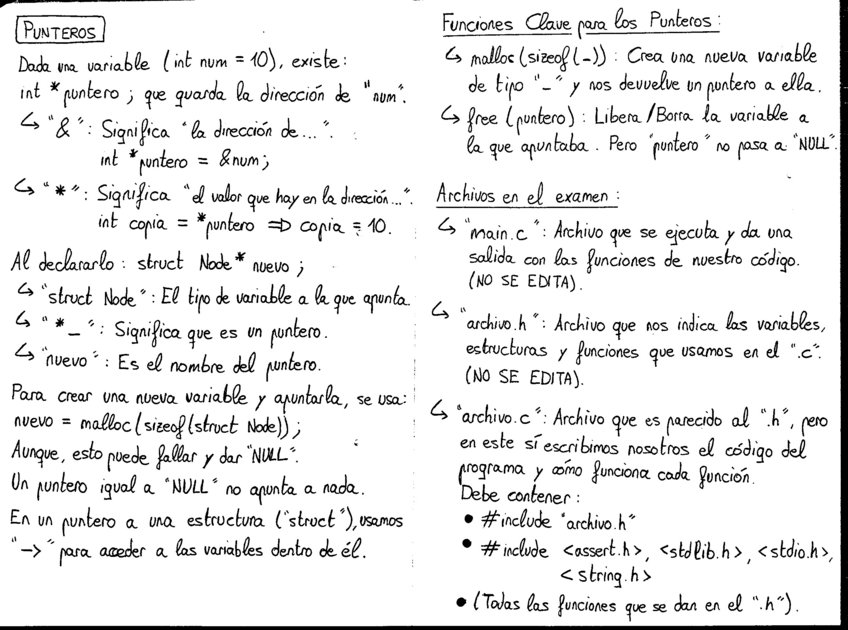 PUNTEROS
Dada una variable (int num = 10), existe:
int *puntero ; que guarda la dirección de "num".
↳ "&": Significa "la dirección de...".
int *puntero = &num;
↳ "*": Significa "el valor que hay en la dirección...".
int copia = *puntero => copia = 10.
Al declararlo : struct Node* nuevo ;
↳ "struct Node": El tipo de variable a la que apunta.
↳ "*_": Significa que es un puntero.
↳ "nuevo": Es el nombre del puntero.
Para crear una nueva variable y apuntarla, se usa:
nuevo = malloc(sizeof(struct Node));
Aunque, esto puede fallar y dar "NULL".
Un puntero igual a "NULL" no apunta a nada.
En un puntero a una estructura ("struct"), usamos
"->" para acceder a las variables dentro de él.
Funciones Clave para los Punteros :
↳ malloc(sizeof(_)) : Crea una nueva variable
de tipo "_" y nos devuelve un puntero a ella.
↳ free (puntero) : Libera/Borra la variable a
la que apuntaba. Pero "puntero" no pasa a "NULL".
Archivos en el examen :
↳ "main.c": Archivo que se ejecuta y da una
salida con las funciones de nuestro código.
(NO SE EDITA).
↳ "archivo.h": Archivo que nos indica las variables,
estructuras y funciones que usamos en el ".c".
(NO SE EDITA).
↳ "archivo.c": Archivo que es parecido al ".h", pero
en este sí escribimos nosotros el código del
programa y cómo funciona cada función.
Debe contener :
• #include "archivo.h"
• #include <assert.h>, <stdlib.h>, <stdio.h>,
<string.h>
• (Todas las funciones que se dan en el ".h").